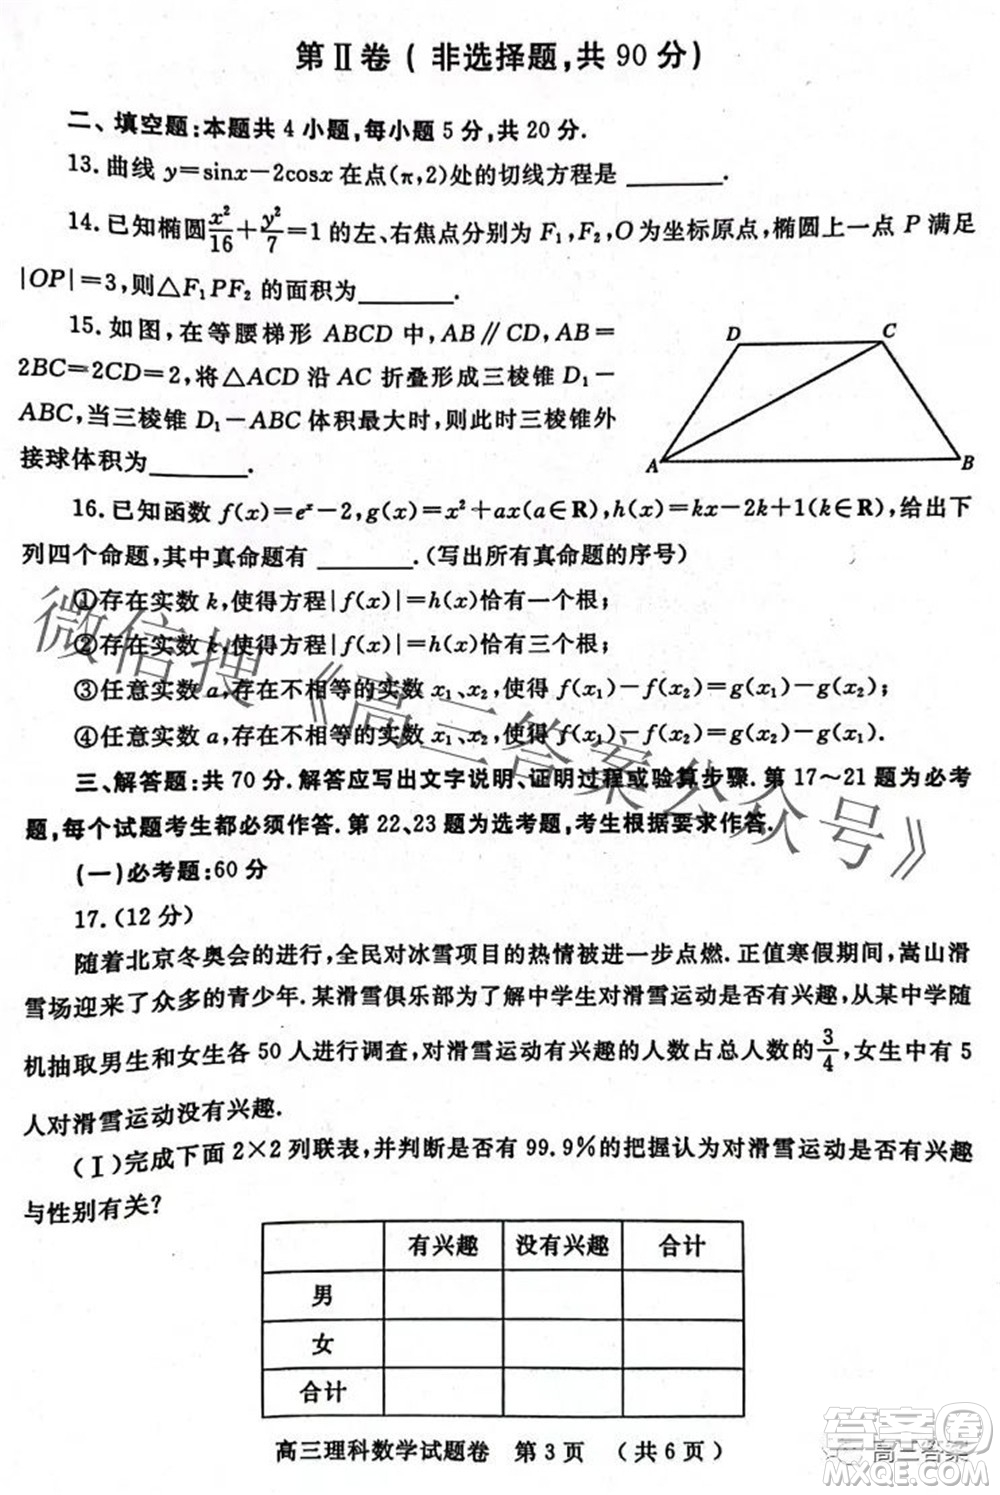 第Ⅱ卷( 非选择题,共 90 分)
二、填空题:本题共 4 小题,每小题 5 分,共 20 分.
13.曲线 y=sinx-2cosx 在点(π,2)处的切线方程是 ______.
14.已知椭圆x²/16+y²/7=1 的左、右焦点分别为 F₁,F₂,O 为坐标原点,椭圆上一点 P 满足
|OP|=3,则△F₁PF₂ 的面积为______.
15.如图,在等腰梯形 ABCD 中,AB∥CD,AB=
2BC=2CD=2,将△ACD 沿 AC 折叠形成三棱锥 D₁-
ABC,当三棱锥 D₁-ABC 体积最大时,则此时三棱锥外
接球体积为______.
D
C
A
B
16.已知函数 f(x)=eˣ-2,g(x)=x²+ax(a∈R),h(x)=kx-2k+1(k∈R),给出下
列四个命题,其中真命题有 ______.(写出所有真命题的序号)
①存在实数 k,使得方程|f(x)|=h(x)恰有一个根;
②存在实数 k,使得方程|f(x)|=h(x)恰有三个根;
③任意实数 a,存在不相等的实数 x₁、x₂,使得 f(x₁)-f(x₂)=g(x₁)-g(x₂);
④任意实数 a,存在不相等的实数 x₁、x₂,使得 f(x₁)-f(x₂)=g(x₂)-g(x₁).
三、解答题:共 70 分.解答应写出文字说明、证明过程或验算步骤.第 17～21 题为必考
题,每个试题考生都必须作答.第 22、23 题为选考题,考生根据要求作答.
(一)必考题:60 分
17.(12 分)
随着北京冬奥会的进行,全民对冰雪项目的热情被进一步点燃.正值寒假期间,嵩山滑
雪场迎来了众多的青少年.某滑雪俱乐部为了解中学生对滑雪运动是否有兴趣,从某中学随
机抽取男生和女生各 50 人进行调查,对滑雪运动有兴趣的人数占总人数的3/4,女生中有 5
人对滑雪运动没有兴趣.
(Ⅰ)完成下面 2×2 列联表,并判断是否有 99.9%的把握认为对滑雪运动是否有兴趣
与性别有关?
有兴趣 没有兴趣 合计
男
女
合计
高三理科数学试题卷 第 3 页 (共 6 页)
微信搜《高三答案公众号》
答案圈
MXQE.COM
高三答案